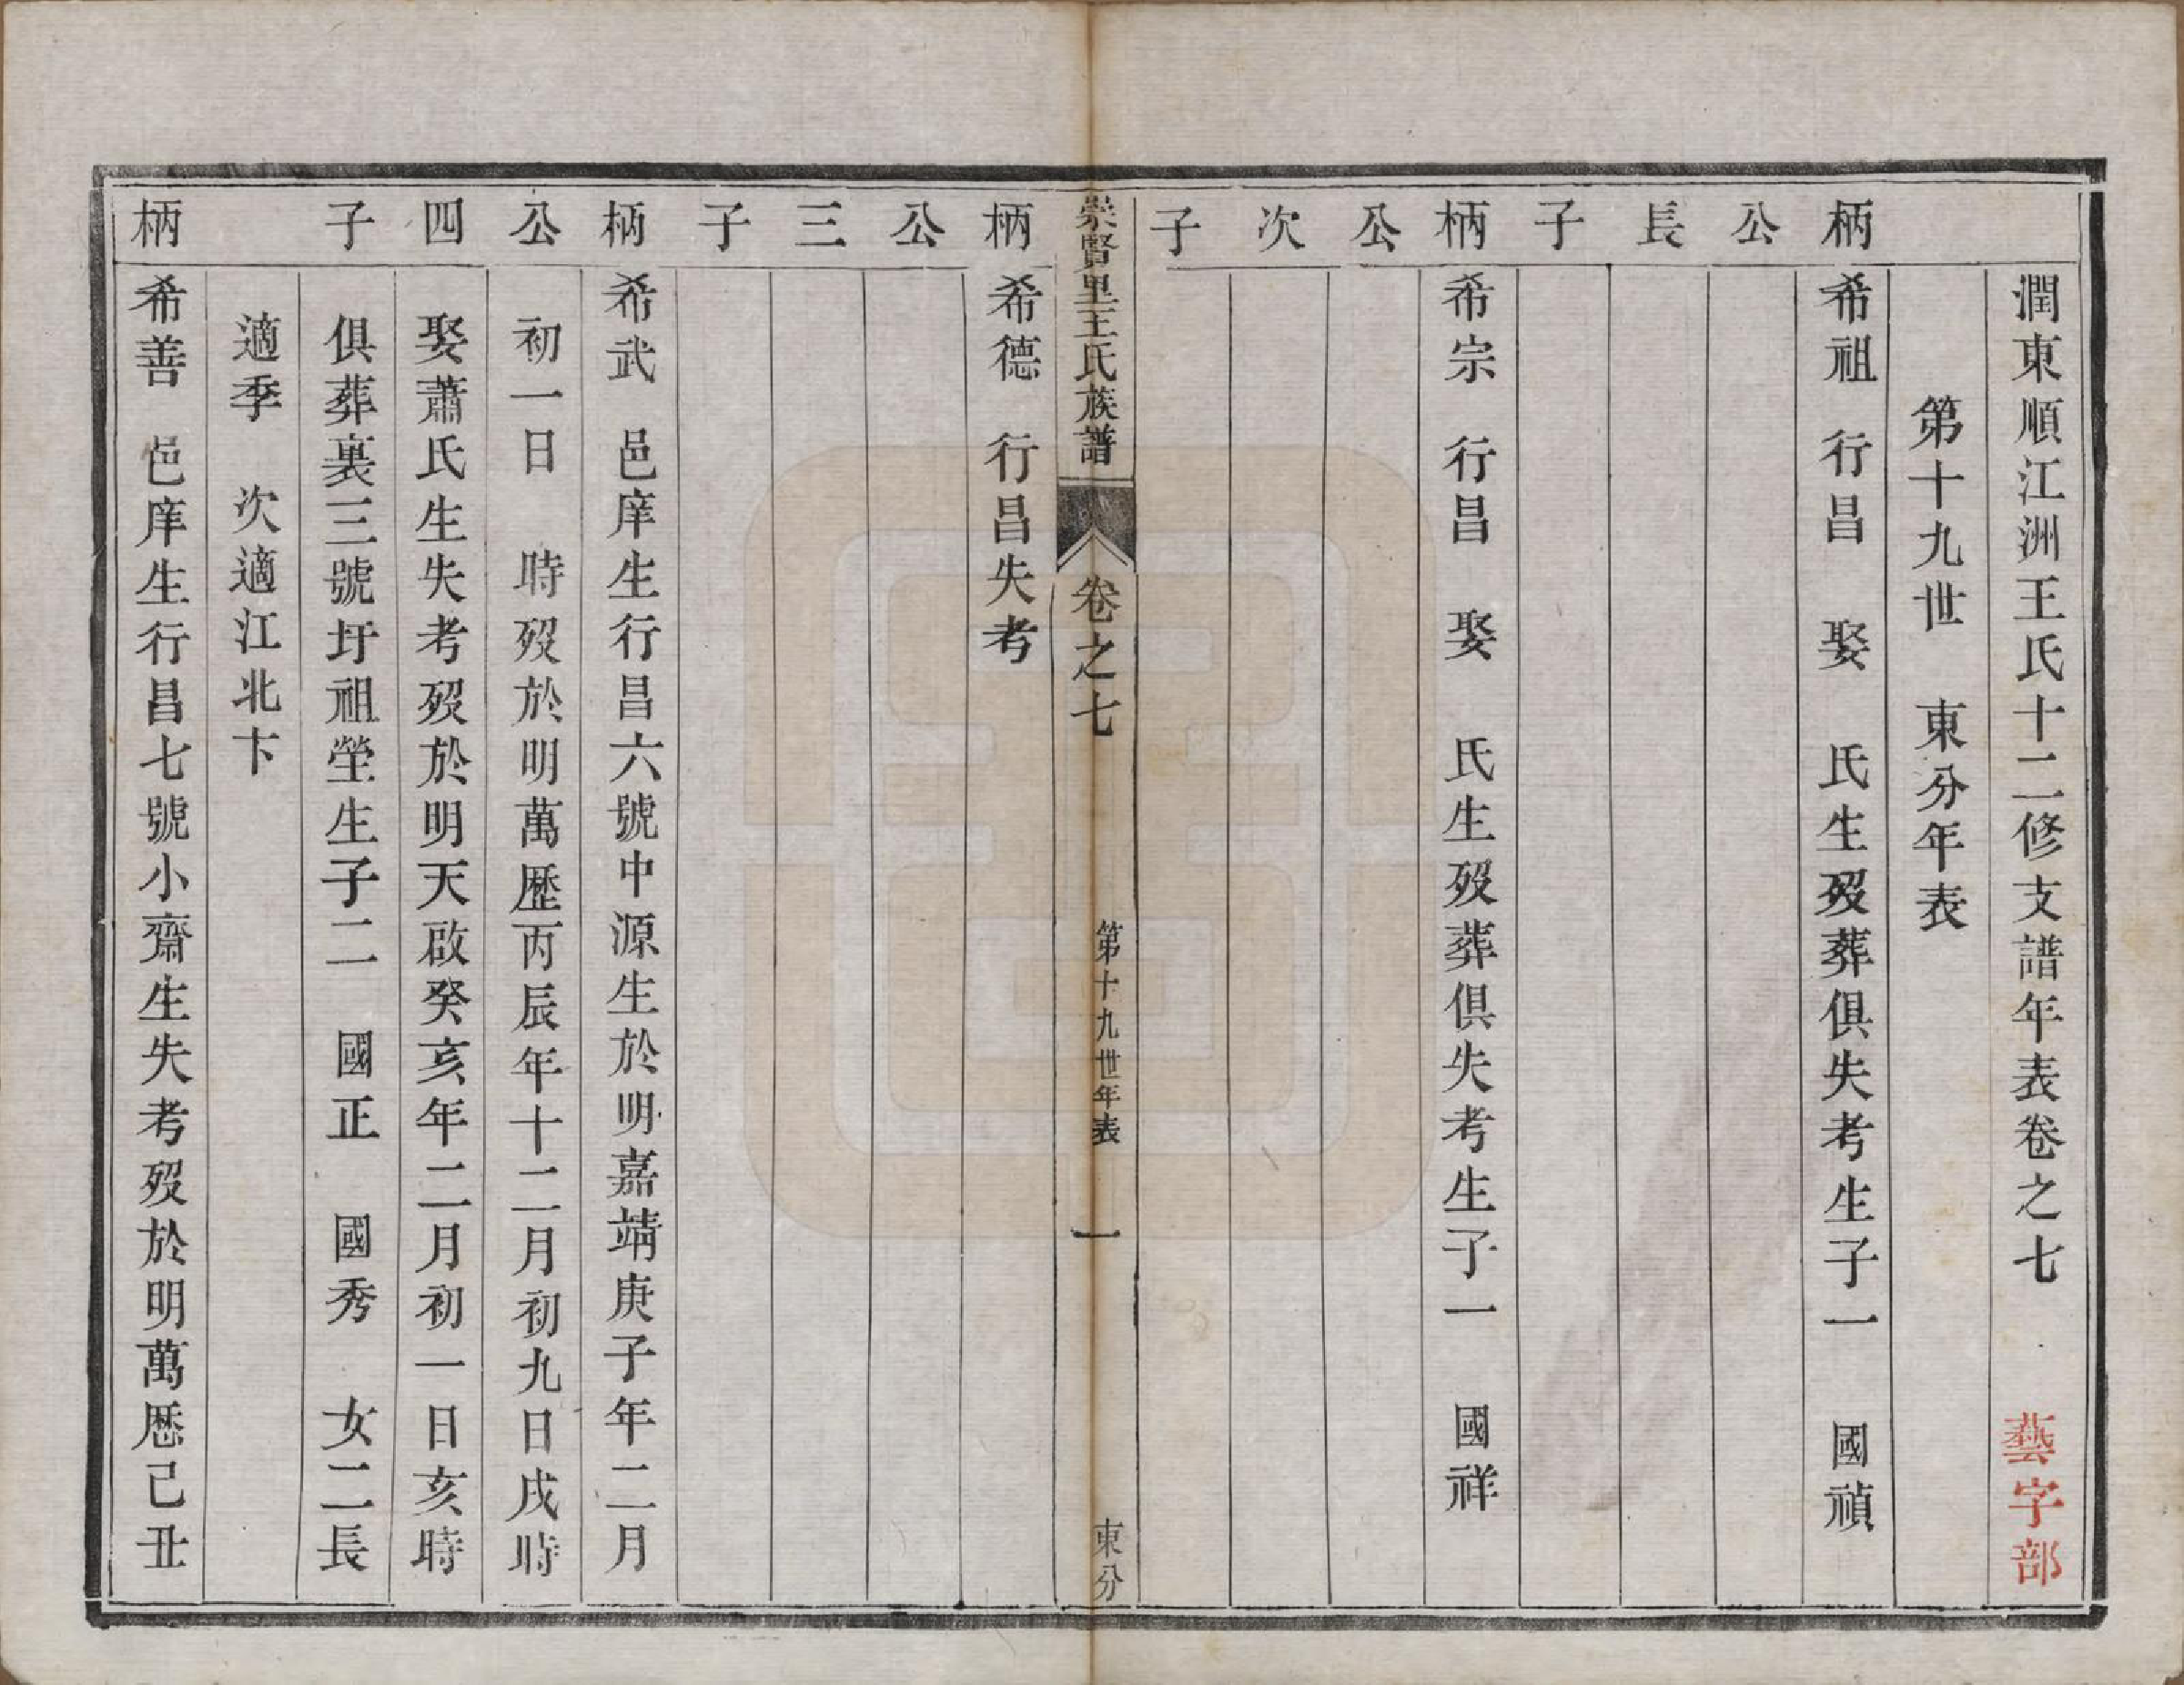 潤東順江洲王氏十二修支譜年表卷之七 藝字部
第十九世 東分年表
柄公長子
希祖 行昌 娶 氏生歿葬俱失考生子一 國禎
柄公次子
希宗 行昌 娶 氏生歿葬俱失考生子一 國祥
崇賢里王氏族譜 卷之七 第十九世年表 一 東分
柄公三子
希德 行昌失考
柄公四子
希武 邑庠生行昌六號中源生於明嘉靖庚子年二月
初一日 時歿於明萬歷丙辰年十二月初九日戌時
娶蕭氏生失考歿於明天啟癸亥年二月初一日亥時
俱葬裏三號圩祖塋生子二 國正 國秀 女二長
適季 次適江北卞
柄
希善 邑庠生行昌七號小齋生失考歿於明萬歷己丑